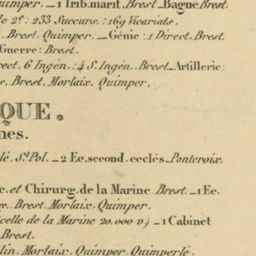 uimper._1 Trib. marit. Brest_Bagne Brest.
le 2e: 233 Succurs.: 169 Vicariats.
. Brest. Quimper._Génie: 1 Direct. Brest.
Guerre: Brest.
rect. 6 Ingén.: 4 S. Ingén. Brest_Artillerie:
e, Brest, Morlaix, Quimper.
QUE.
nes.
lé, St. Pol._2 Ec. second. ecclés. Pontcroix.
e. et Chirurg. de la Marine Brest._1 Ec.
er. Brest. Morlaix. Quimper.
celle de la Marine 20.000 v_1 Cabinet
Brest.
lin. Morlaix. Quimper. Quimperlé.